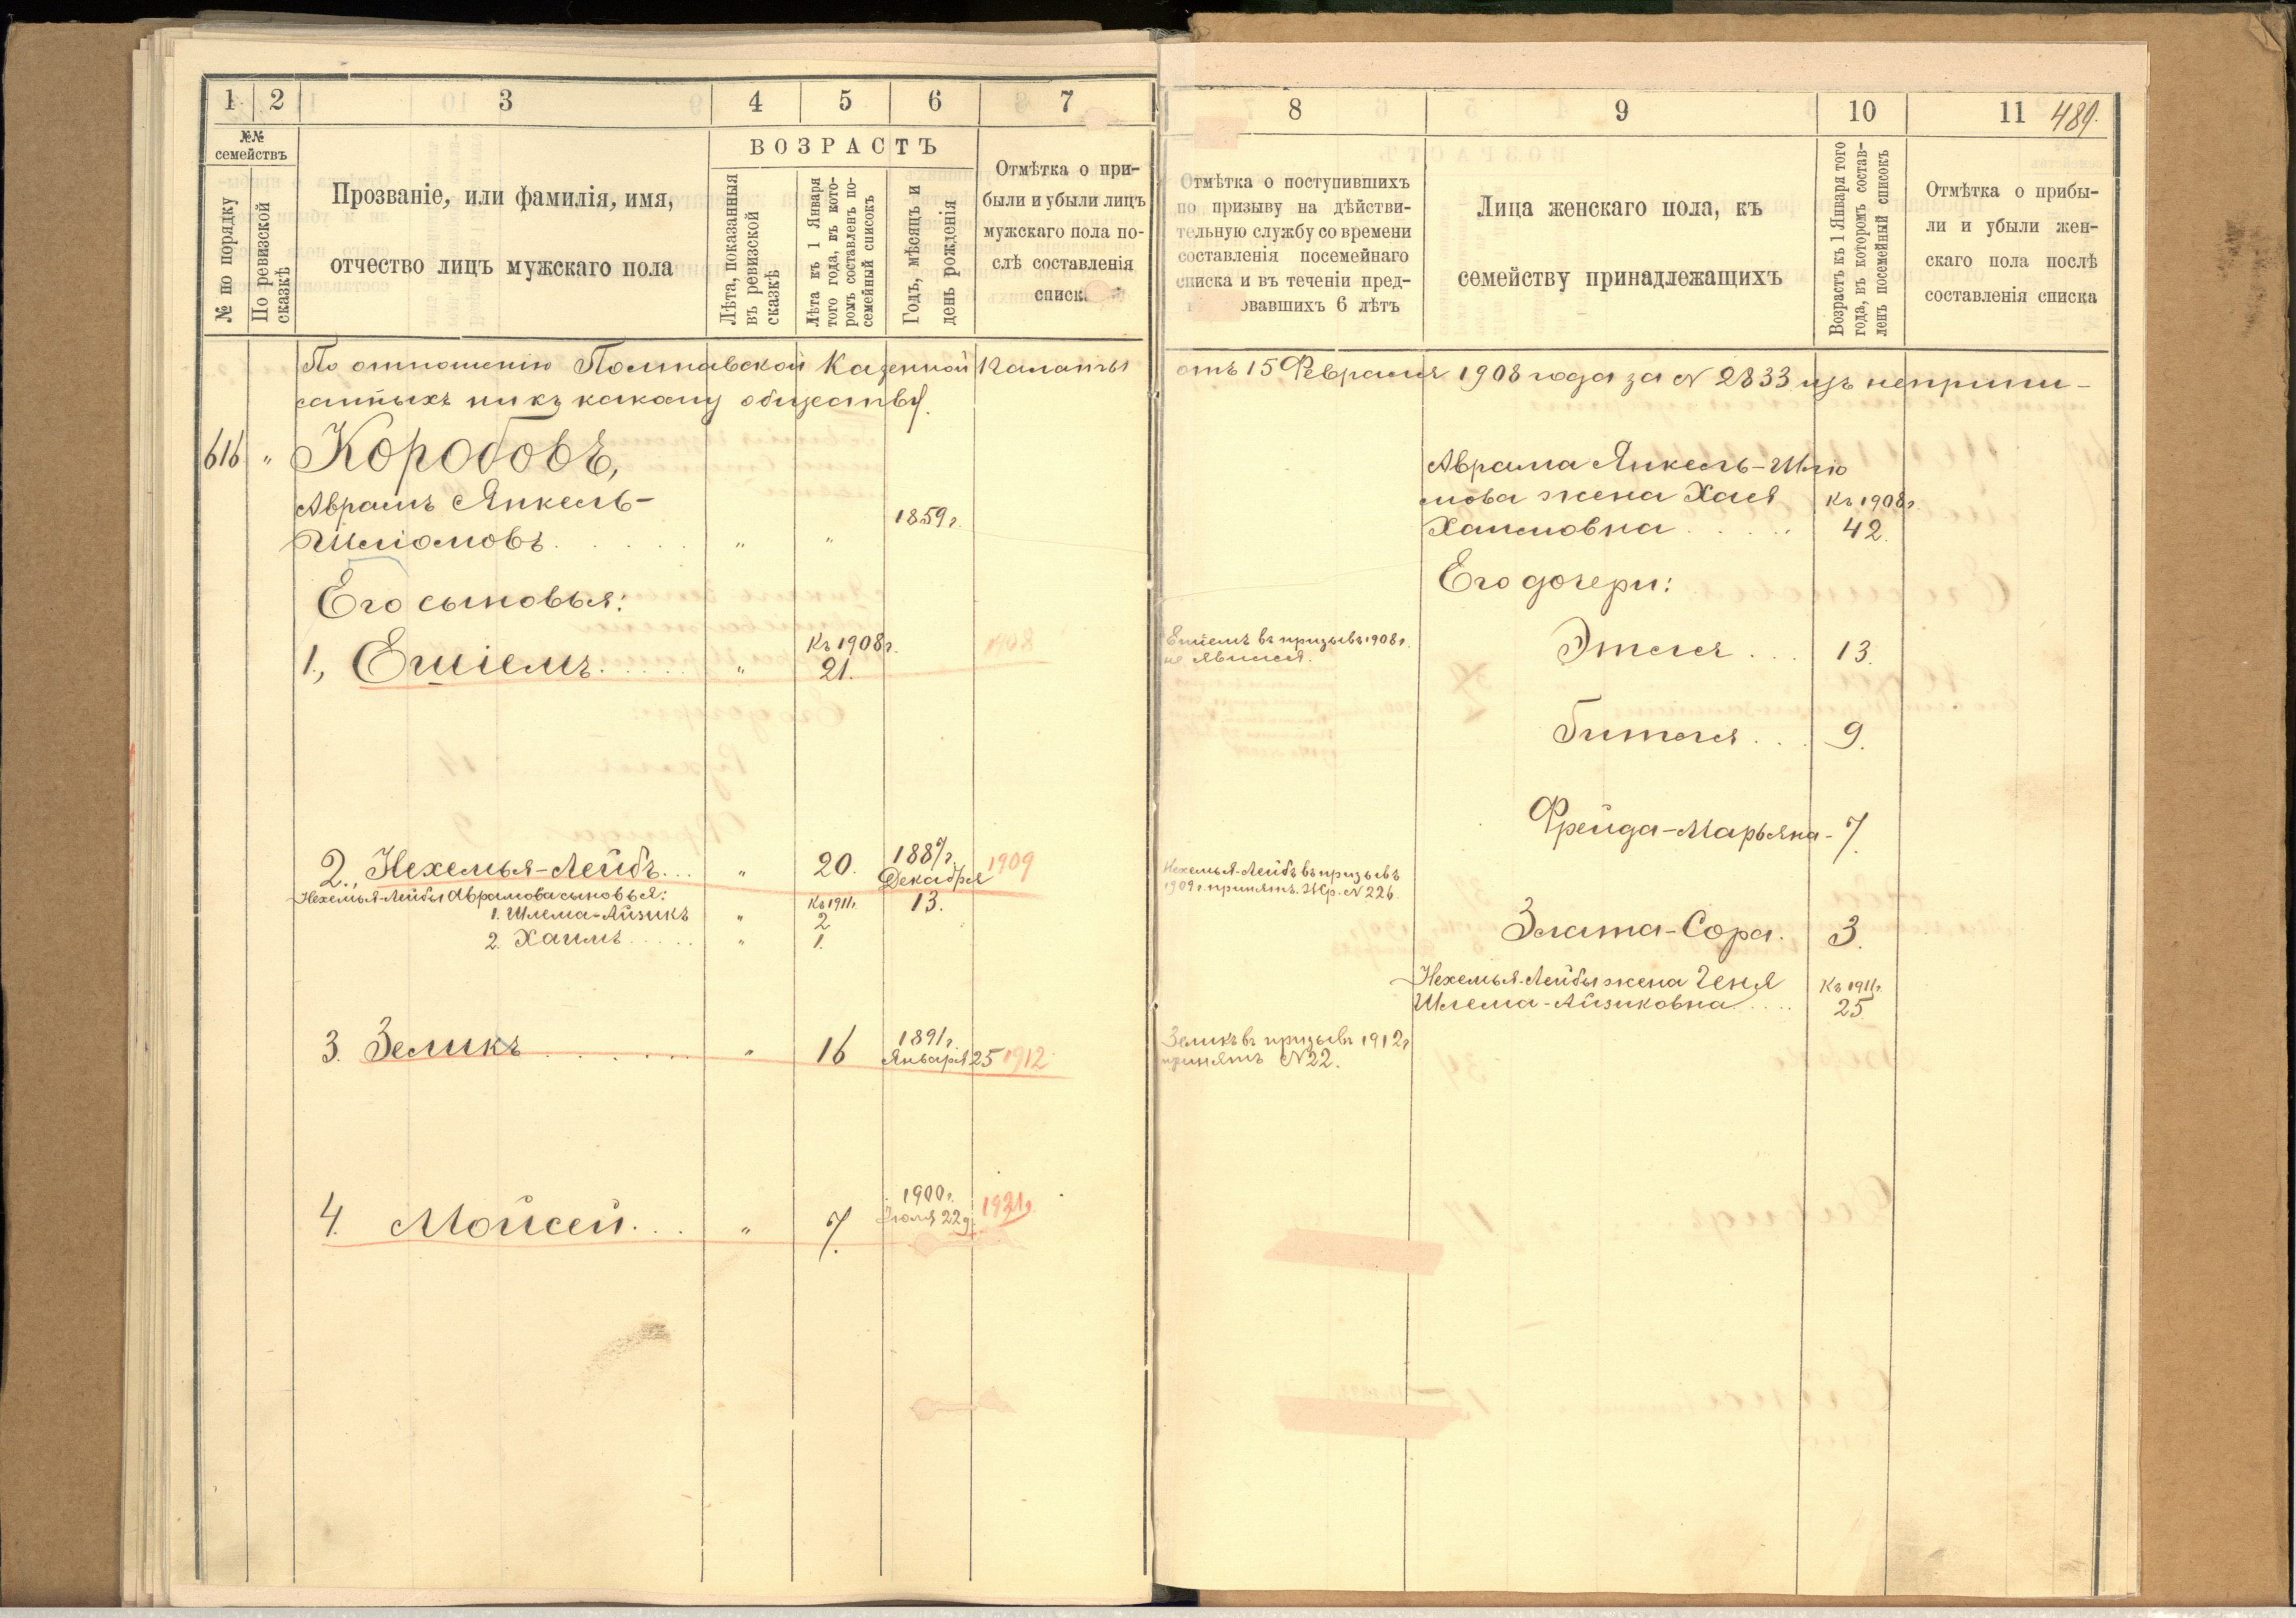 1 2 3 4 5 6 7
№№ семействъ
№ по порядку
По ревизской сказкѣ
Прозваніе, или фамилія, имя,
отчество лицъ мужскаго пола
ВОЗРАСТЪ
Лѣта, показанныя
въ ревизской
сказкѣ
Лѣта къ 1 Января
того года, въ кото-
ромъ составленъ по-
семейный списокъ
Годъ, мѣсяцъ и
день рожденія
Отмѣтка о при-
были и убыли лицъ
мужскаго пола по-
слѣ составленія
списка
По отношенію Полтавской Казенной Палаты
санныхъ ни къ какому обществу.
616 „ Коробовъ,
Аврамъ Янкель-
1859 г.
Шліомовъ . . . . . „ „
Его сыновья:
Къ 1908 г.
1908
1., Ешіемъ . . . . . „ 21.
2., Нехемья-Лейбъ . . . „ 20. 1887 г. Декабря 13. 1909
Нехемья-Лейбы Аврамова сыновья:
Къ 1911 г.
1. Шлема-Айзикъ „ 2
2. Хаимъ . . . . . „ 1.
3. Зеликъ . . . . . „ 16 1891 г. Января 25 1912
4. Мойсей . . . „ 7. 1900 г. Іюля 22 д. 1921 г.
8 9 10 11
489.
Отмѣтка о поступившихъ
по призыву на дѣйстви-
тельную службу со времени
составленія посемейнаго
списка и въ теченіи пред-
овавшихъ 6 лѣтъ
Лица женскаго пола, къ
семейству принадлежащихъ
Возрастъ къ 1 Января того
года, въ которомъ состав-
ленъ посемейный списокъ
Отмѣтка о прибы-
ли и убыли жен-
скаго пола послѣ
составленія списка
отъ 15 Февраля 1908 года за № 2833 изъ неприпи-
Аврама Янкель-Шліо
мова жена Хася Къ 1908 г.
Хаимовна . . . . . 42.
Его дочери:
Ешіемъ въ призывъ 1908 г.
не явился.
Этля . . . 13.
Гитля . . . 9.
Фрейда-Марьяна - 7.
Нехемья-Лейбъ въ призывъ
1909 г. принятъ. Жр. № 226.
Злата-Сора. 3.
Нехемья-Лейбы жена Геня Къ 1911 г.
Шлема-Айзиковна . . . . 25
Зеликъ въ призывъ 1912 г
принятъ № 22.